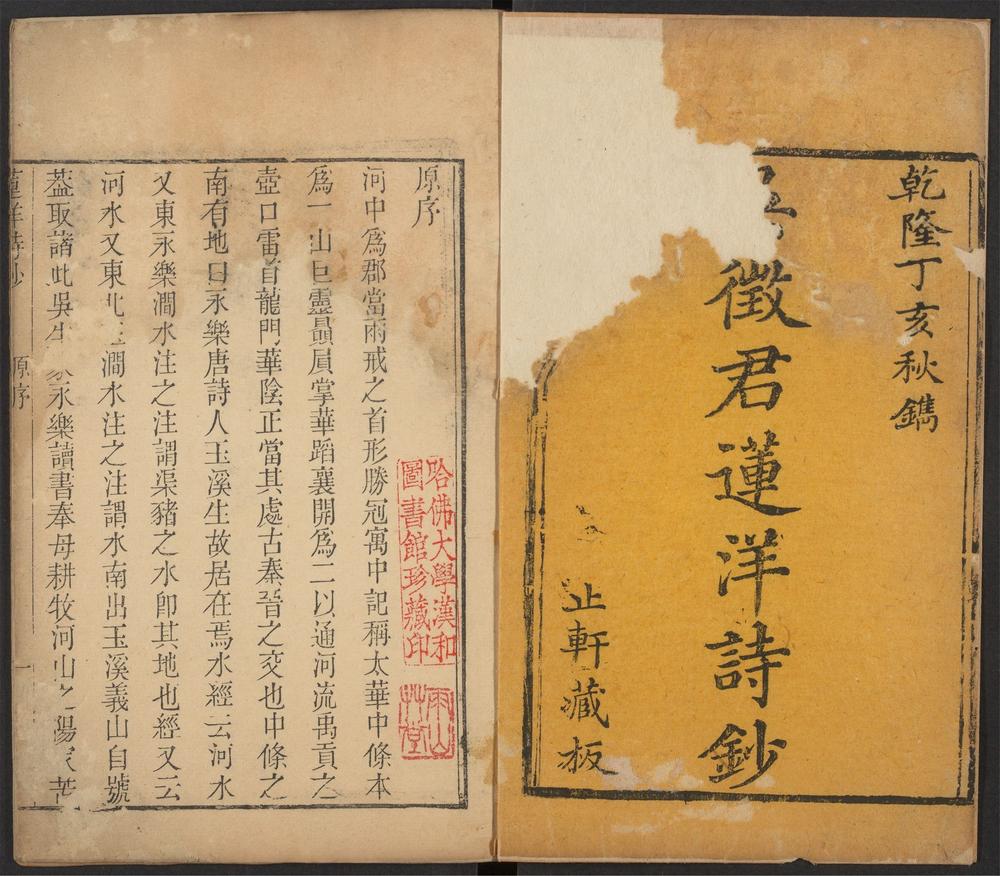 乾隆丁亥秋鐫
徵君蓮洋詩鈔
止軒藏板
原序
河中為郡當兩戒之首形勝冠寓中記稱太華中條本
為一山巨靈贔屓掌華蹈襄開為二以通河流禹貢之
壺口雷首龍門華陰正當其處古秦晉之交也中條之
南有地曰永樂唐詩人玉溪生故居在焉水經云河水
又東永樂澗水注之注謂渠豬之水卽其地也經又云
河水又東北玉澗水注之注謂水南出玉溪義山自號
葢取諸此吳生家永樂讀書奉母耕牧河山之陽家苦
蓮洋詩鈔 原序 一
哈佛大學漢和
圖書館珍藏印
雨山
草堂